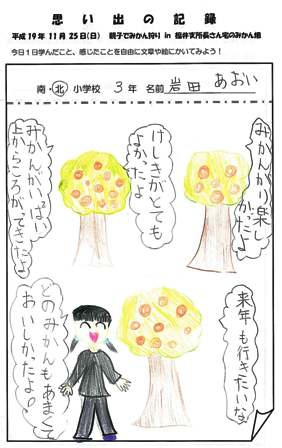 思い出の記録
平成19年11月25日(日) 親子でみかん狩り in 福井支所長さん宅のみかん畑
今日1日学んだこと、感じたことを自由に文章や絵にかいてみよう!
南・北 小学校 3年 名前 岩田 あおい
みかんがり楽し
かったよ
けしきがとても
よかったよ
みかんがいっぱい
上からころがってきたよ
来年も行きたいな。
どのみかんもあまくて
おいしかったよ。